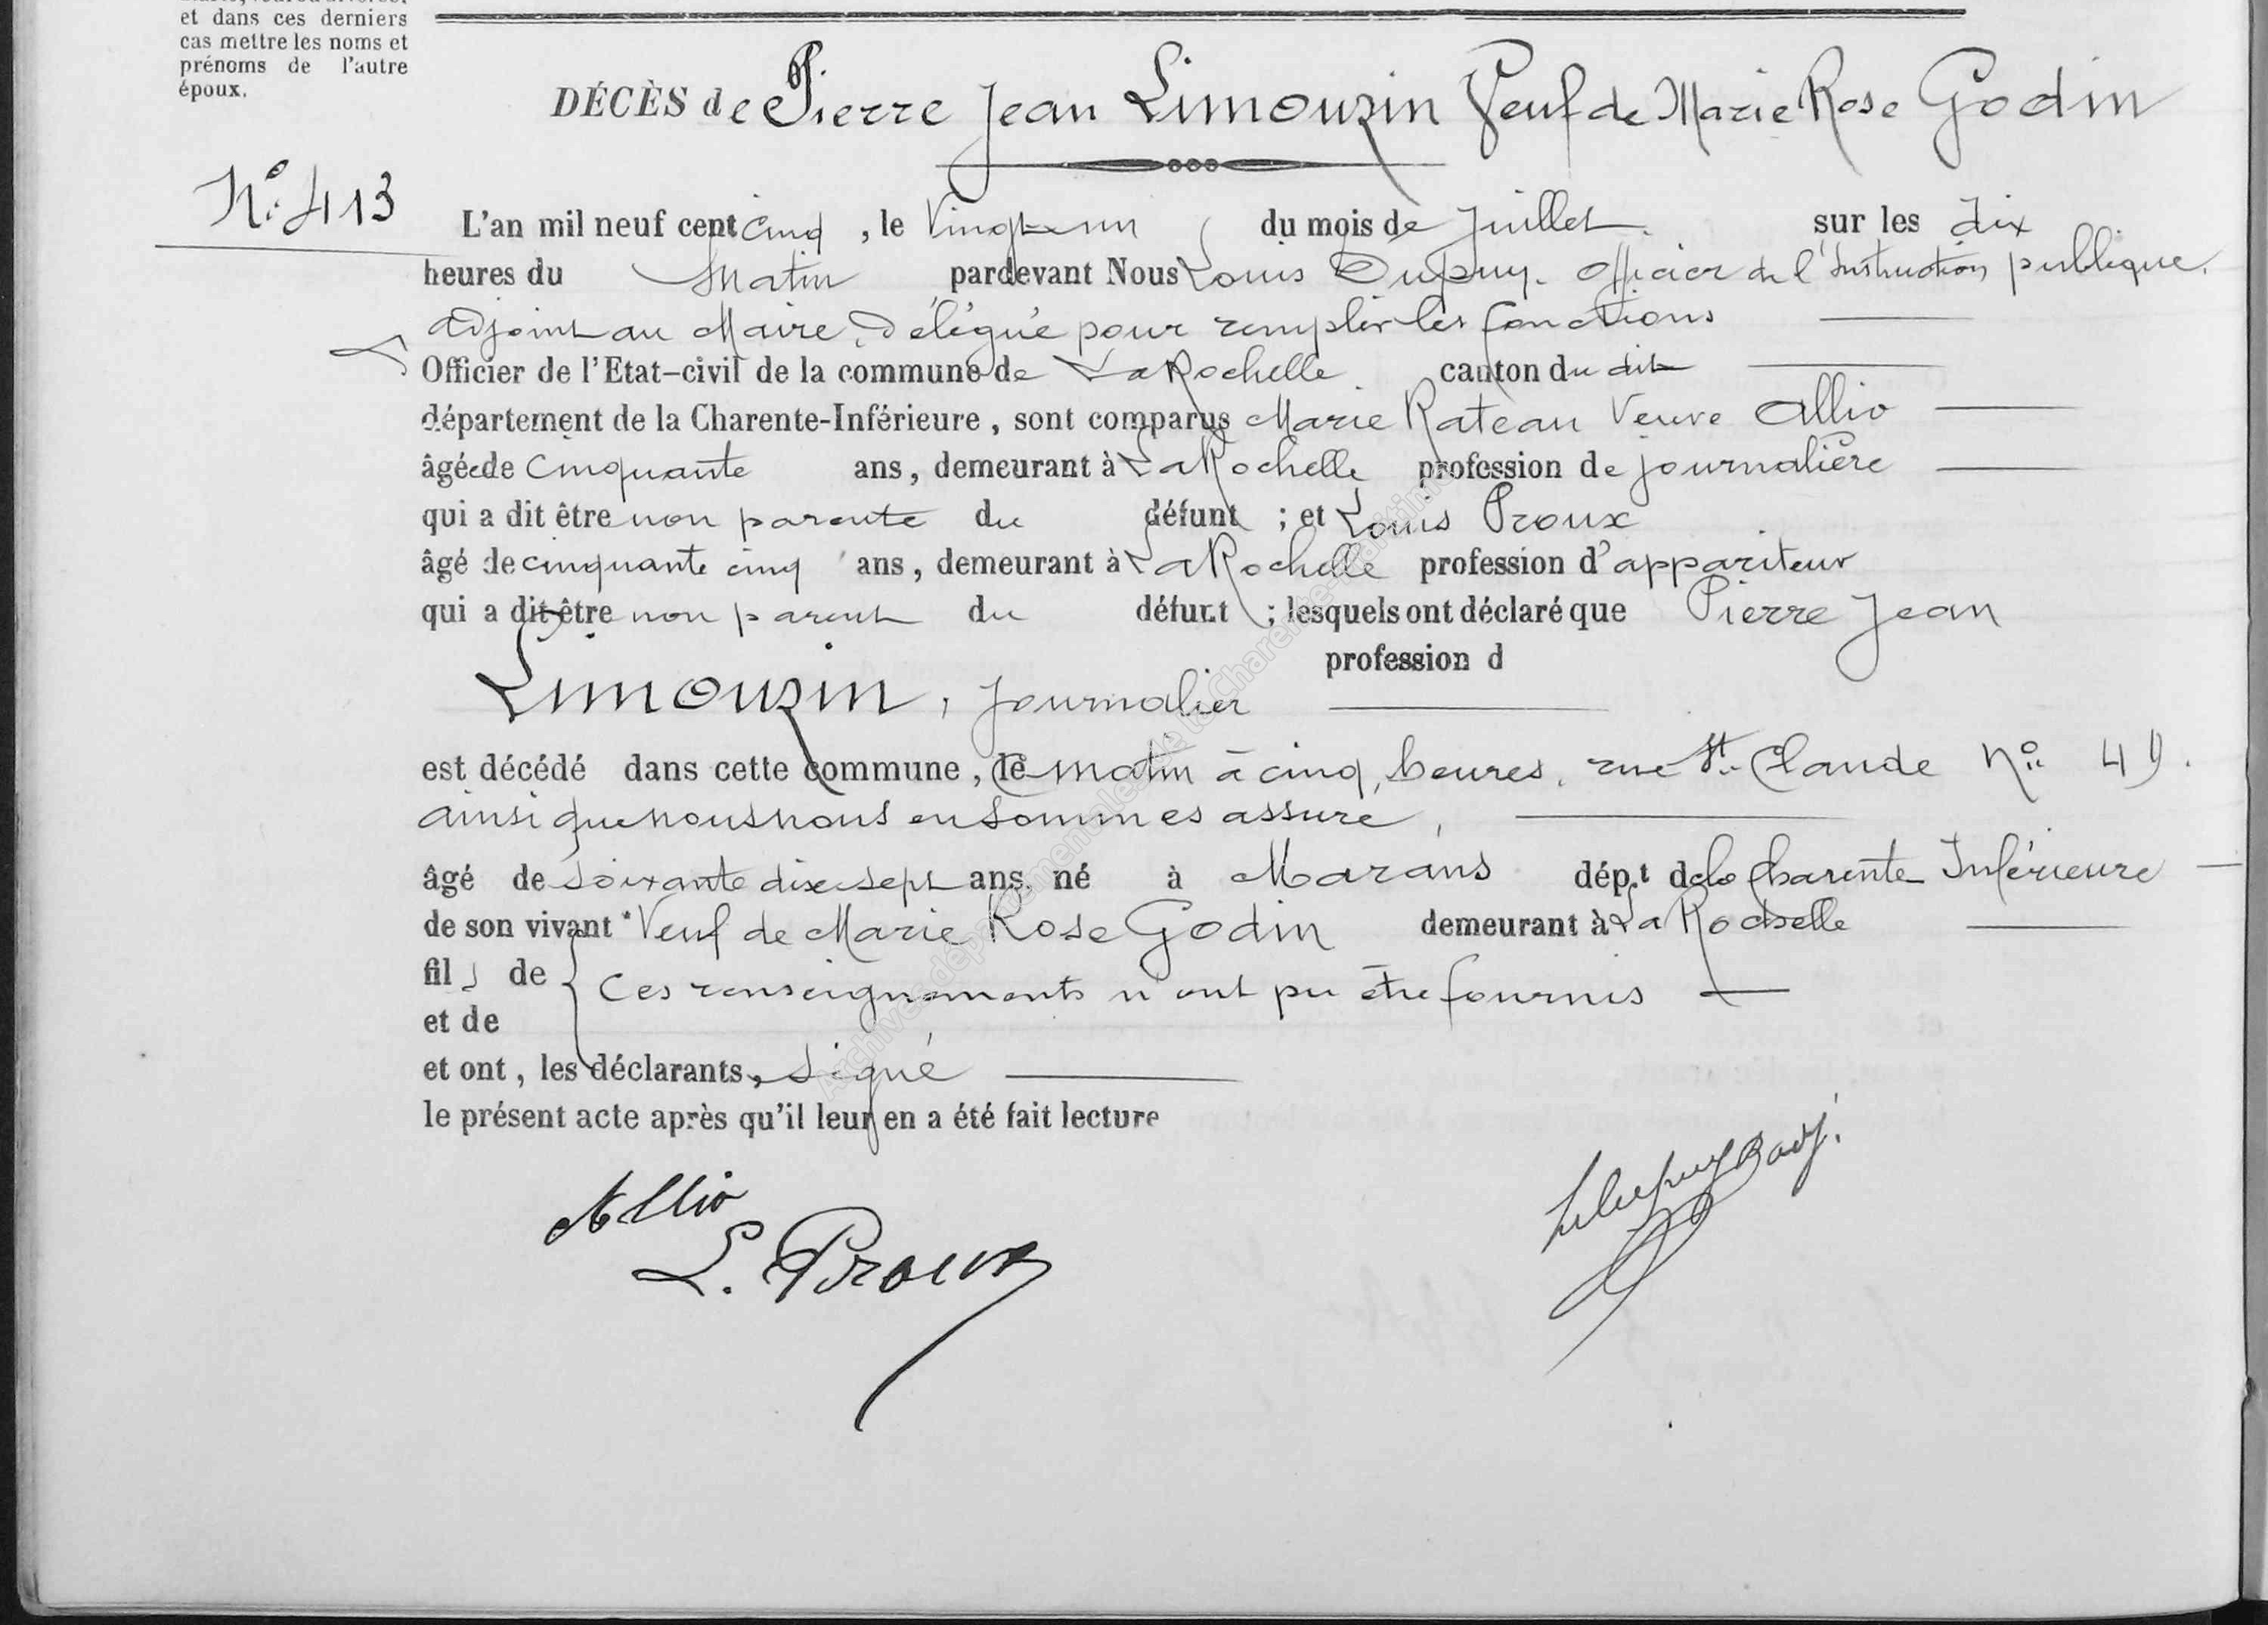 et dans ces derniers
cas mettre les noms et
prénoms de l'autre
époux.
DÉCÈS de Pierre Jean Limouzin Veuf de Marie Rose Godin
N° 413
L'an mil neuf cent cinq, le vingt-un du mois de Juillet sur les dix
heures du Matin pardevant Nous Louis Dupuy. Officier de l'Instruction publique.
adjoint au Maire, délégué pour remplir les fonctions
Officier de l'Etat-civil de la commune de La Rochelle canton du dit
département de la Charente-Inférieure, sont comparus Marie Rateau Veuve Allio
âgée de cinquante ans, demeurant à La Rochelle profession de journalière
qui a dit être non parente du défunt ; et Louis Proux
âgé de cinquante cinq ans, demeurant à La Rochelle profession d'appariteur
qui a dit être non parent du défunt ; lesquels ont déclaré que Pierre Jean
profession d
Limouzin, journalier
est décédé dans cette commune, ce matin à cinq heures, rue St Claude N° 49.
ainsi que nous nous en sommes assuré,
âgé de soixante dix sept ans, né à Marans dép.t de la Charente Inférieure
de son vivant Veuf de Marie Rose Godin demeurant à La Rochelle
fils de { Ces renseignements n'ont pu être fournis
et de
et ont, les déclarants, signé
le présent acte après qu'il leur en a été fait lecture
Allio
L. Proux
L. Dupuy adj.
Archives départementales de la Charente-Maritime